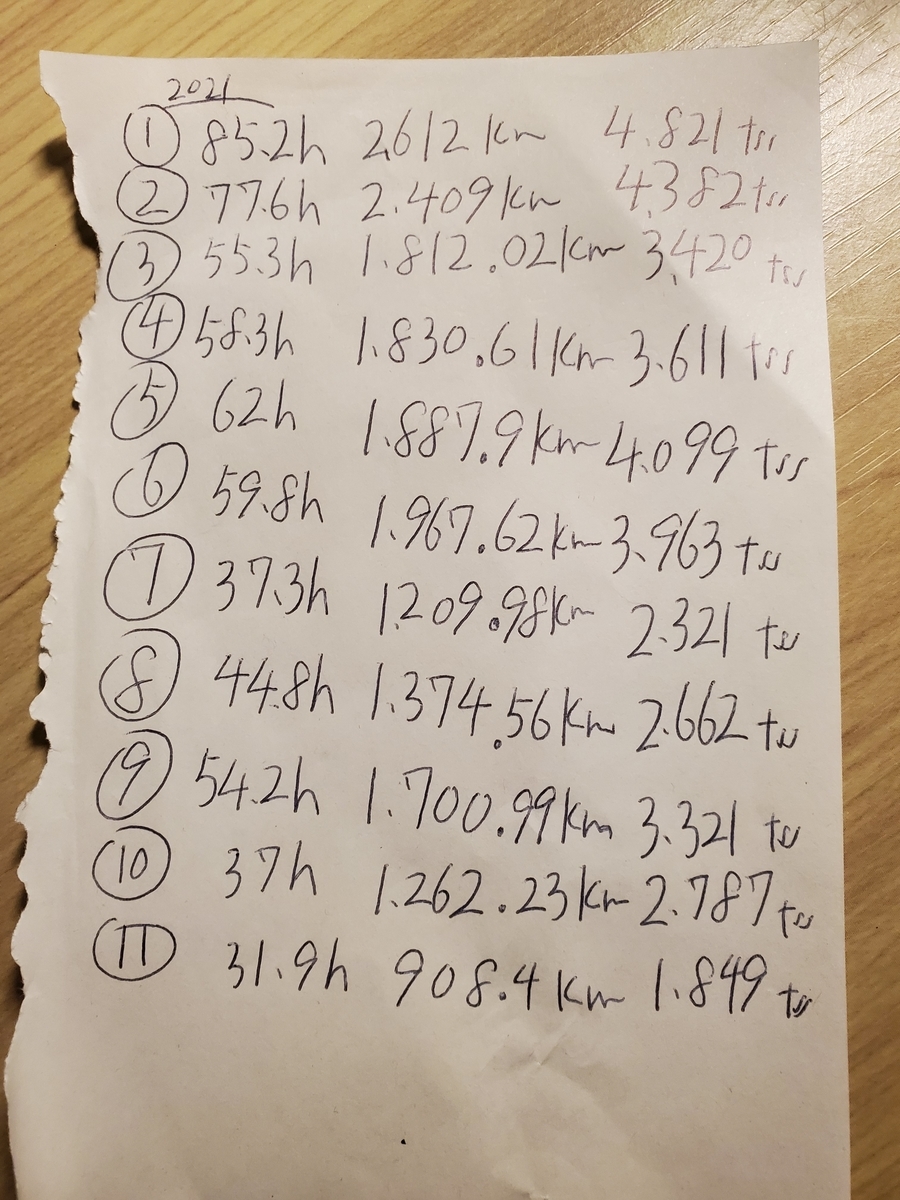 2021
① 85.2h 2.612km 4.821 tss
② 77.6h 2.409km 4.382 tss
③ 55.3h 1.812.02km 3.420 tss
④ 58.3h 1.830.61km 3.611 tss
⑤ 62h 1.887.9km 4.099 tss
⑥ 59.8h 1.967.62km 3.963 tss
⑦ 37.3h 1.209.98km 2.321 tss
⑧ 44.8h 1.374.56km 2.662 tss
⑨ 54.2h 1.700.99km 3.321 tss
⑩ 37h 1.262.23km 2.787 tss
⑪ 31.9h 908.4km 1.849 tss